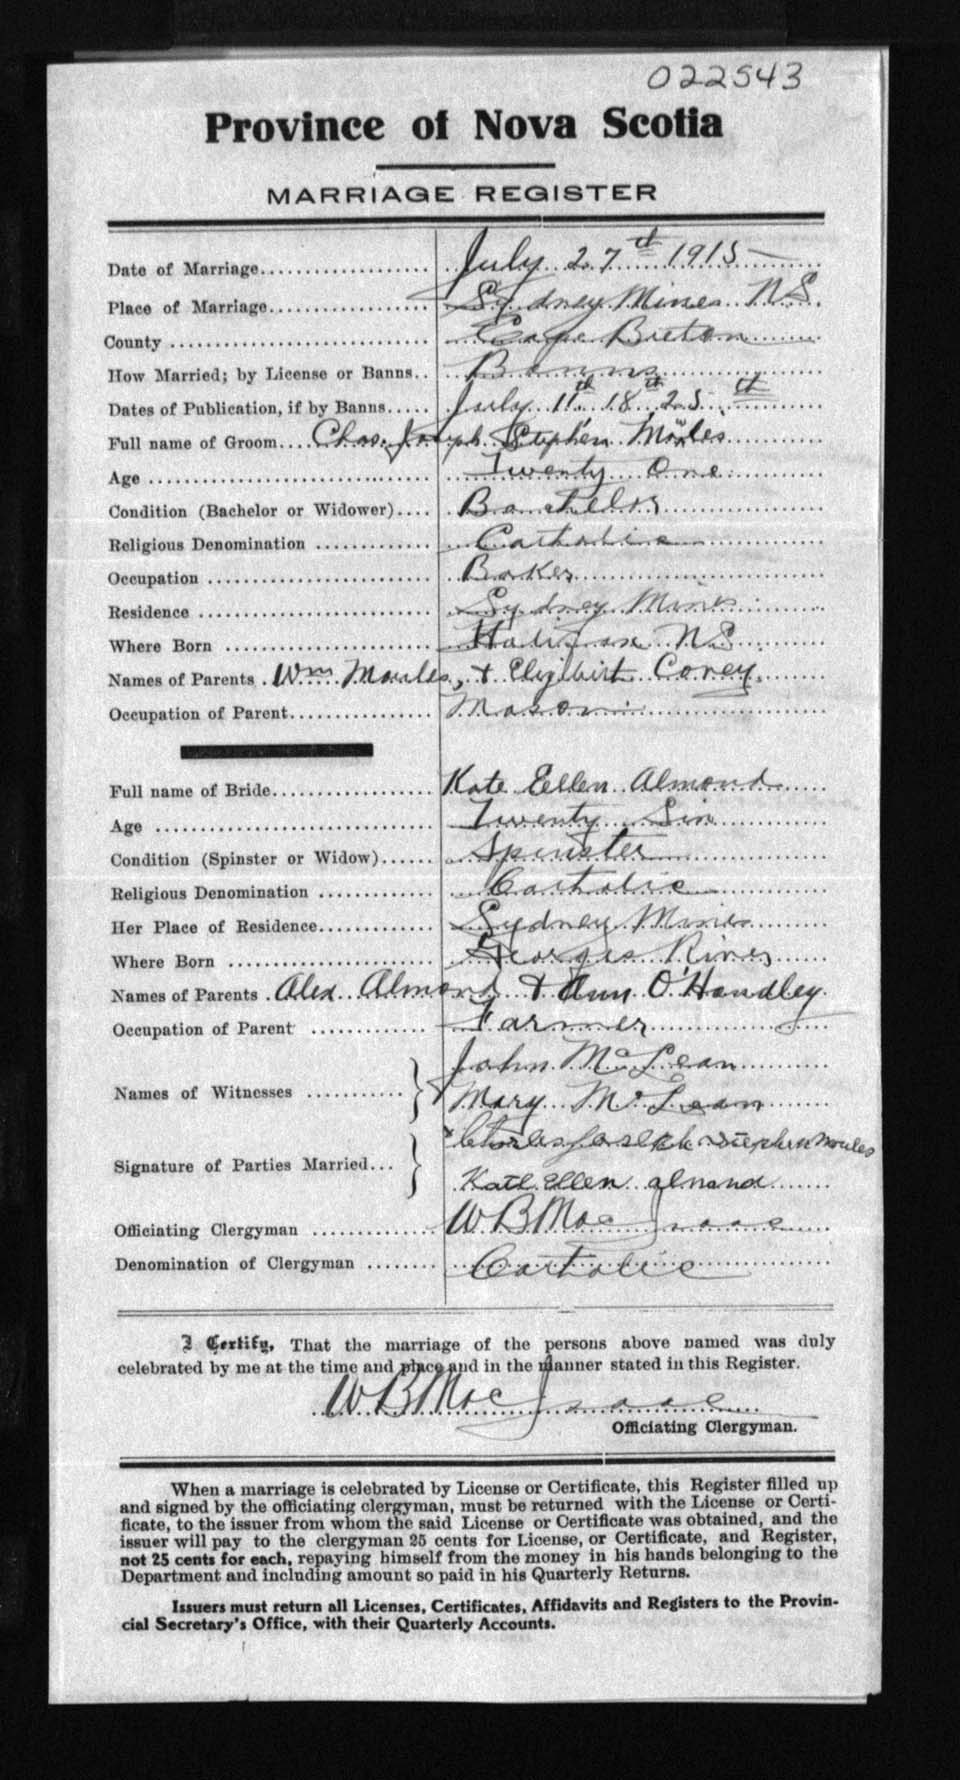 022543
Province of Nova Scotia
MARRIAGE REGISTER
Date of Marriage July 27th 1915
Place of Marriage Sydney Mines N.S.
County Cape Breton
How Married; by License or Banns Banns
Dates of Publication, if by Banns July 11th 18th 25th
Full name of Groom Chas. Joseph Stephen Moules
Age Twenty One
Condition (Bachelor or Widower) Bachelor
Religious Denomination Catholic
Occupation Baker
Residence Sydney Mines
Where Born Halifax N.S.
Names of Parents Wm Moules, + Elizibirt Corey
Occupation of Parent Mason
Full name of Bride Kate Eellen Almond
Age Twenty Six
Condition (Spinster or Widow) Spinster
Religious Denomination Catholic
Her Place of Residence Sydney Mines
Where Born Georges River
Names of Parents Alex Almond + Ann O'Handley
Occupation of Parent Farmer
Names of Witnesses John McLean
Mary McLean
Signature of Parties Married Charles Joseph Stephen Moules
Kate Ellen almond
Officiating Clergyman W B MacIsaac
Denomination of Clergyman Catholic
I Certify, That the marriage of the persons above named was duly
celebrated by me at the time and place and in the manner stated in this Register.
W B MacIsaac
Officiating Clergyman.
When a marriage is celebrated by License or Certificate, this Register filled up
and signed by the officiating clergyman, must be returned with the License or Certi-
ficate, to the issuer from whom the said License or Certificate was obtained, and the
issuer will pay to the clergyman 25 cents for License, or Certificate, and Register,
not 25 cents for each, repaying himself from the money in his hands belonging to the
Department and including amount so paid in his Quarterly Returns.
Issuers must return all Licenses, Certificates, Affidavits and Registers to the Provin-
cial Secretary's Office, with their Quarterly Accounts.